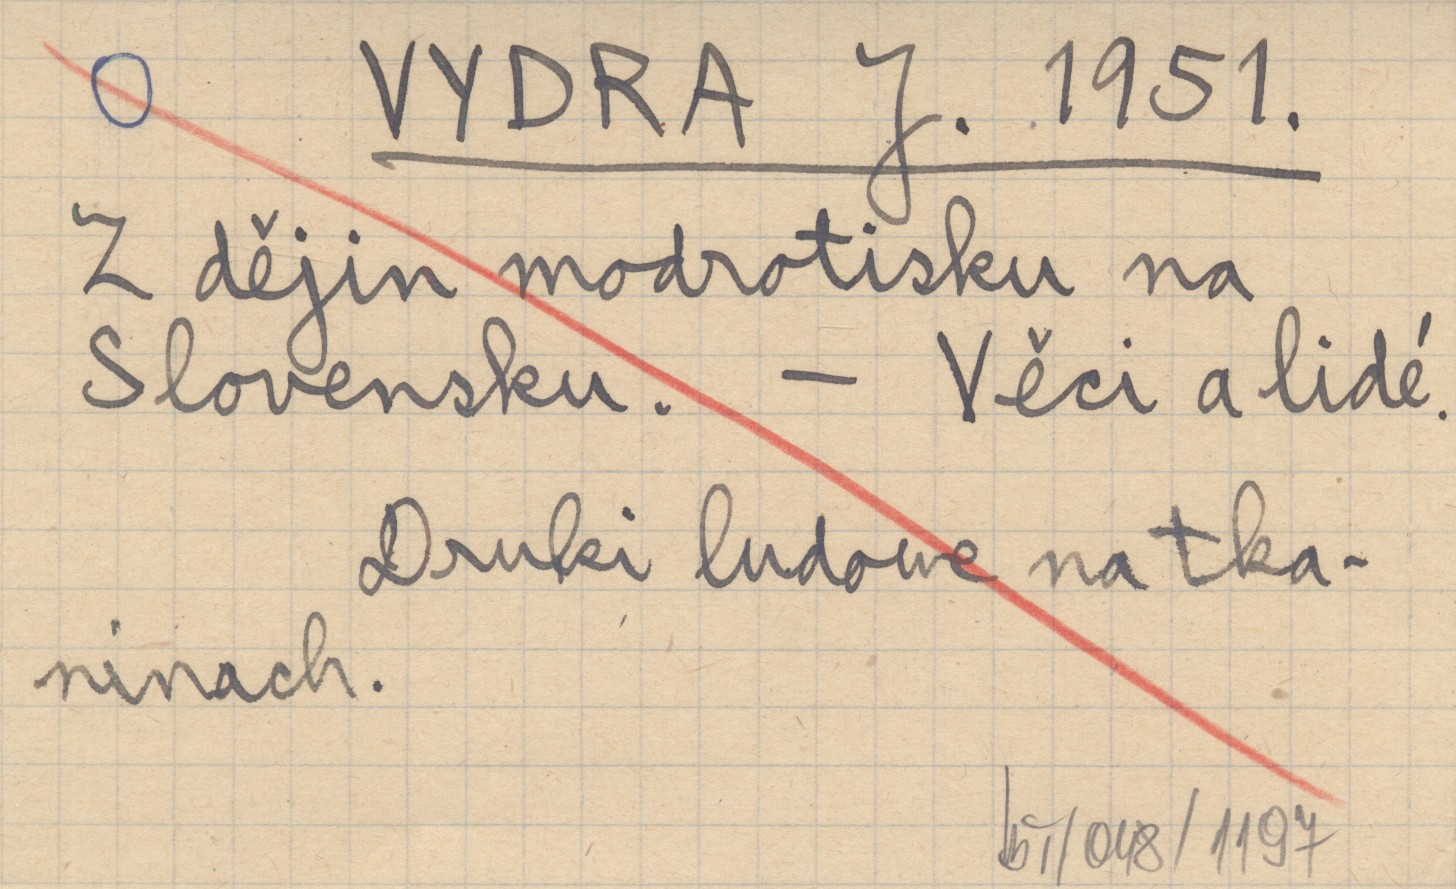 O VYDRA J. 1951.
Z dějin modrotisku na
Slovensku. – Věci a lidé.
Druki ludowe na tka-
ninach.
/048/1197